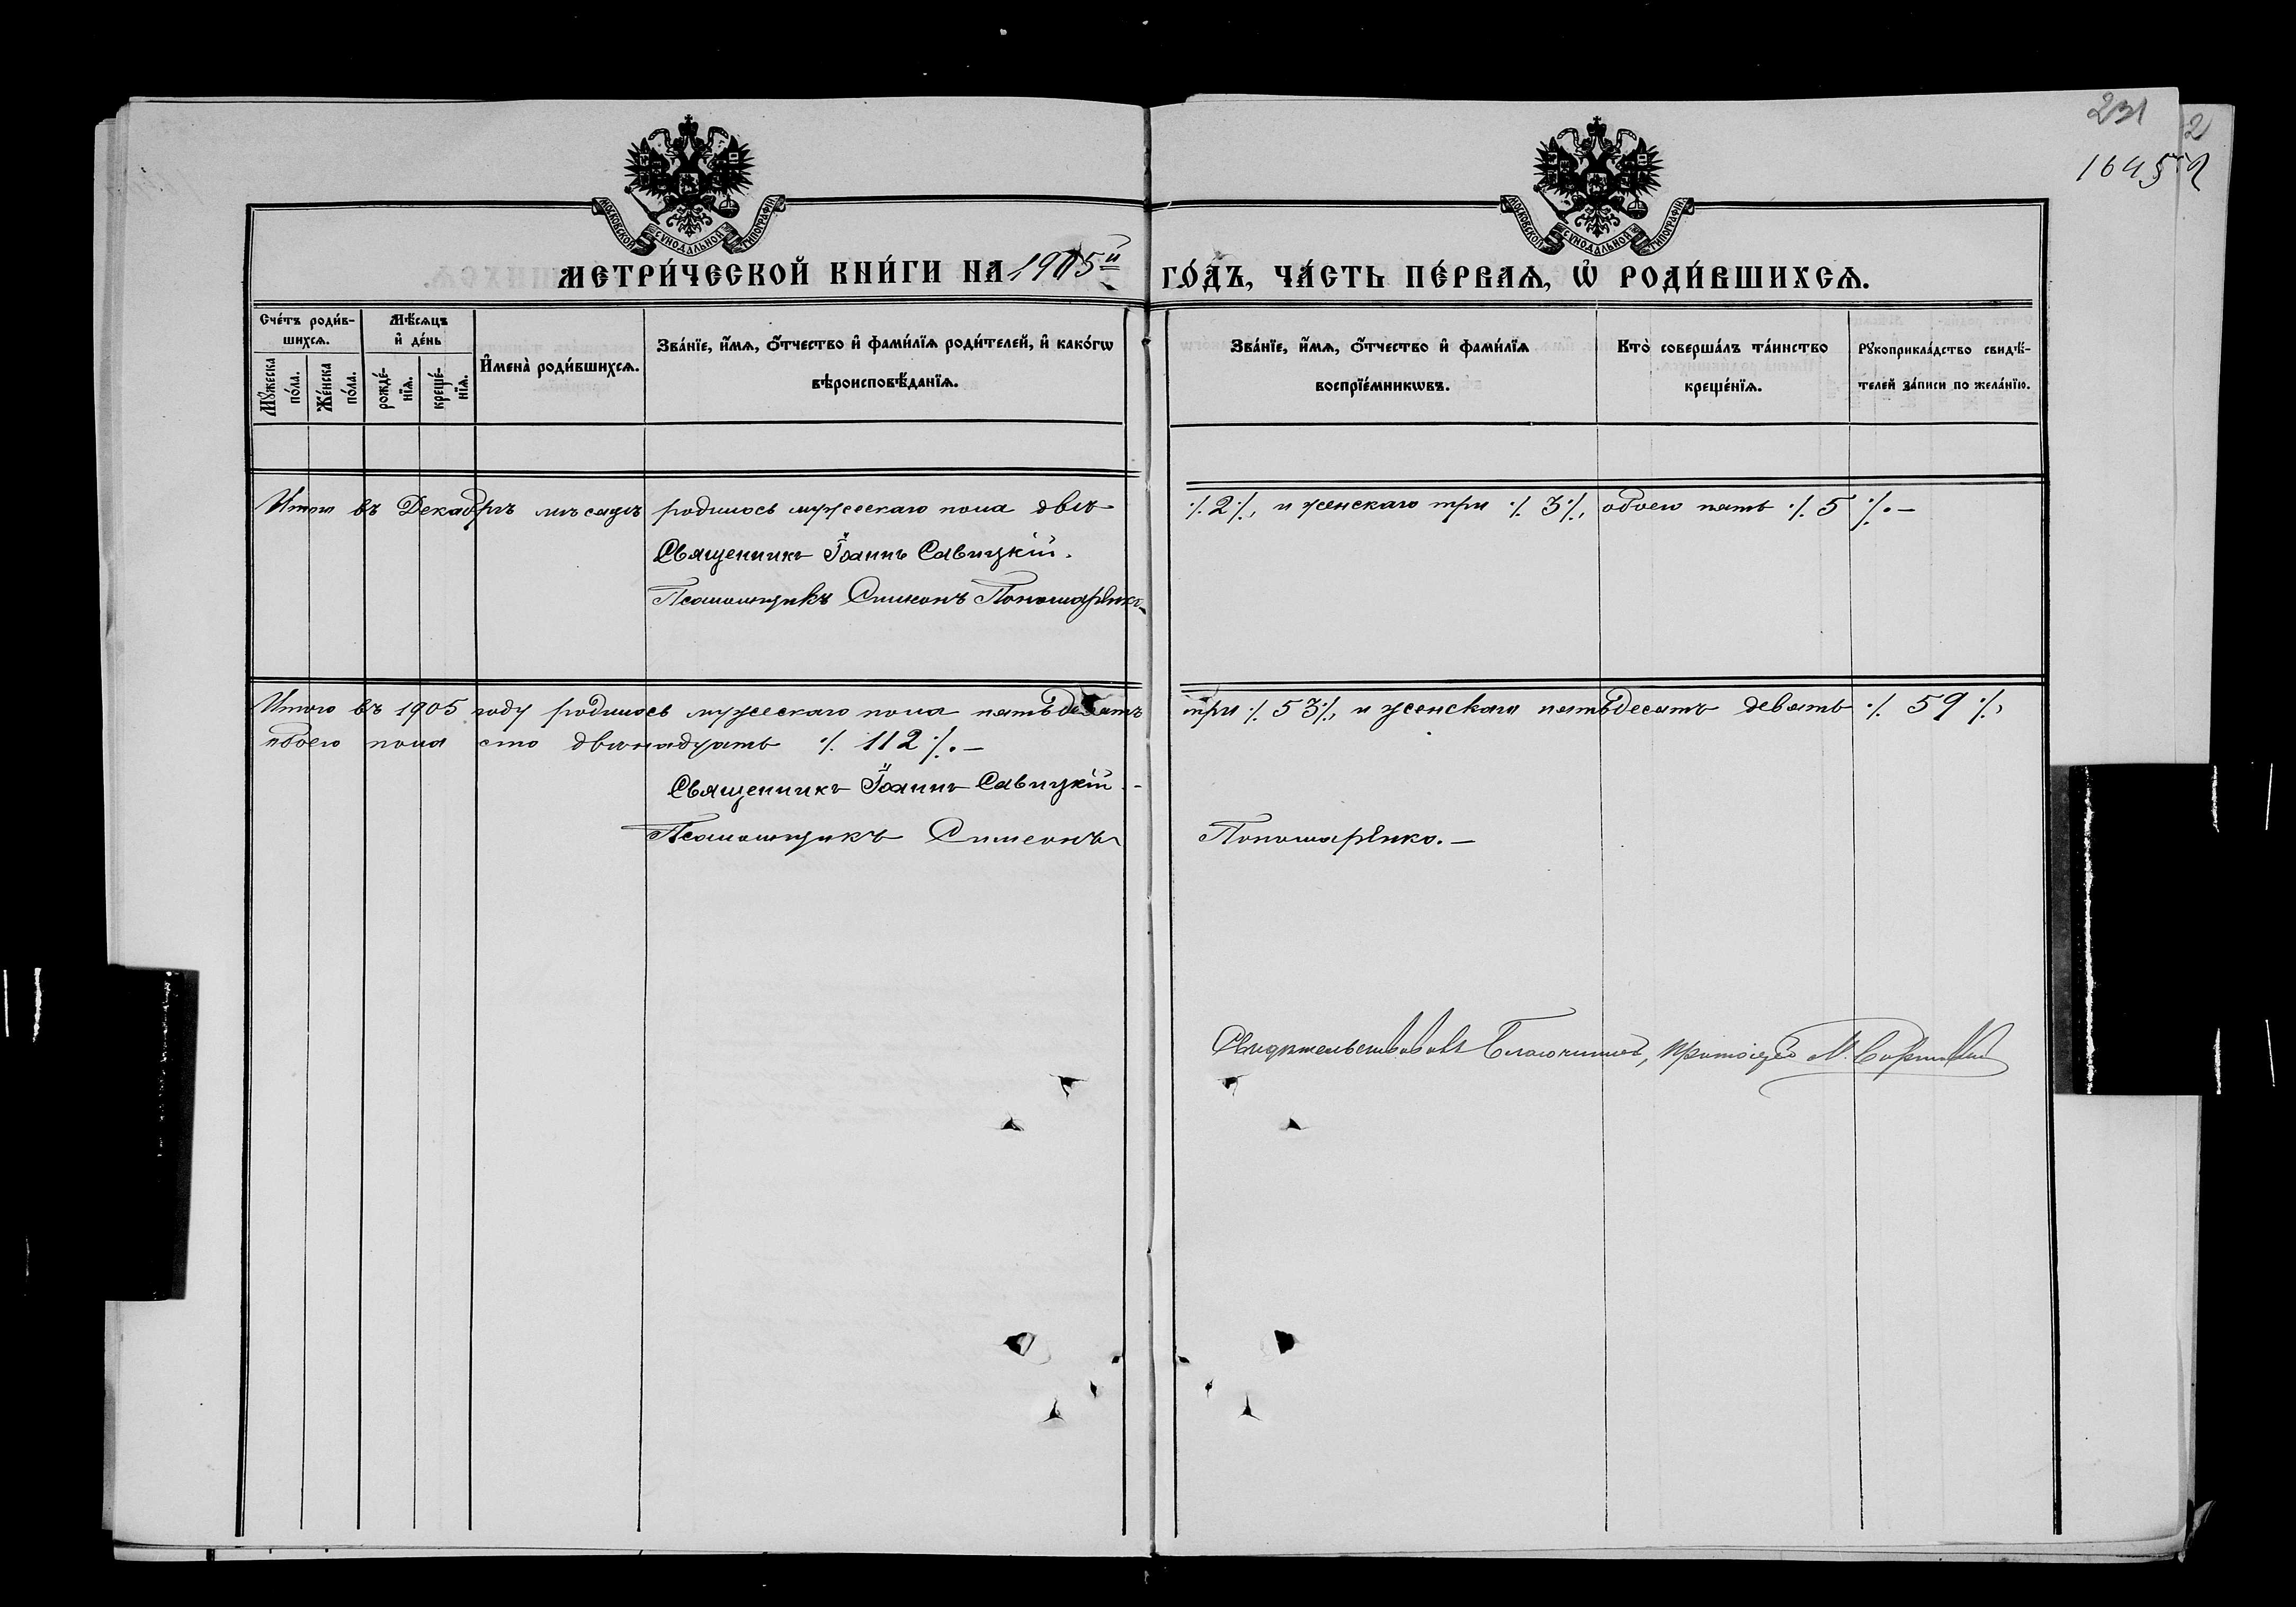 231
2
1645 2
МОСКОВСКОЙ СѴНОДАЛЬНОЙ ТИПОГРАФІИ
МОСКОВСКОЙ СѴНОДАЛЬНОЙ ТИПОГРАФІИ
МЕТРИ́ЧЕСКОЙ КНИ́ГИ НА 1905й ГО́ДЪ, ЧА́СТЬ ПЕ́РВАѦ, Ѡ҆ РОДИ́ВШИХСѦ.
Сче́тъ роди́в-
шихсѧ.
Мꙋ́жеска по́ла.
Же́нска по́ла.
Мѣ́сѧцъ
и҆ де́нь
рожде́-
нїѧ.
креще́-
нїѧ.
И҆мена̀ роди́вшихсѧ.
Зва́нїе, и҆́мѧ, ѻ҆́тчество и҆ фами́лїѧ роди́телей, и҆ како́гѡ
вѣроисповѣ́данїѧ.
Зва́нїе, и҆́мѧ, ѻ҆́тчество и҆ фами́лїѧ
воспрїе́мникѡвъ.
Кто̀ соверша́лъ та́инство
креще́нїѧ.
Рꙋкоприкла́дство свидѣ́-
телей за́писи по жела́нїю.
Итого въ Декабрѣ мѣсяцѣ родилось мужескаго пола два ٪ 2 ٪, и женскаго три ٪ 3 ٪, обоего пять ٪ 5 ٪. –
Священникъ Іоаннъ Савицкій.
Псаломщикъ Симеонъ Пономаренко.
Итого въ 1905 году родилось мужескаго пола пятьдесятъ три ٪ 53 ٪, и женскаго пятьдесятъ девять ٪ 59 ٪,
обоего пола сто двѣнадцать ٪ 112 ٪. –
Священникъ Іоаннъ Савицкій. –
Псаломщикъ Симеонъ Пономаренко. –
Свидѣтельствовалъ Благочинный, протоіерей М.